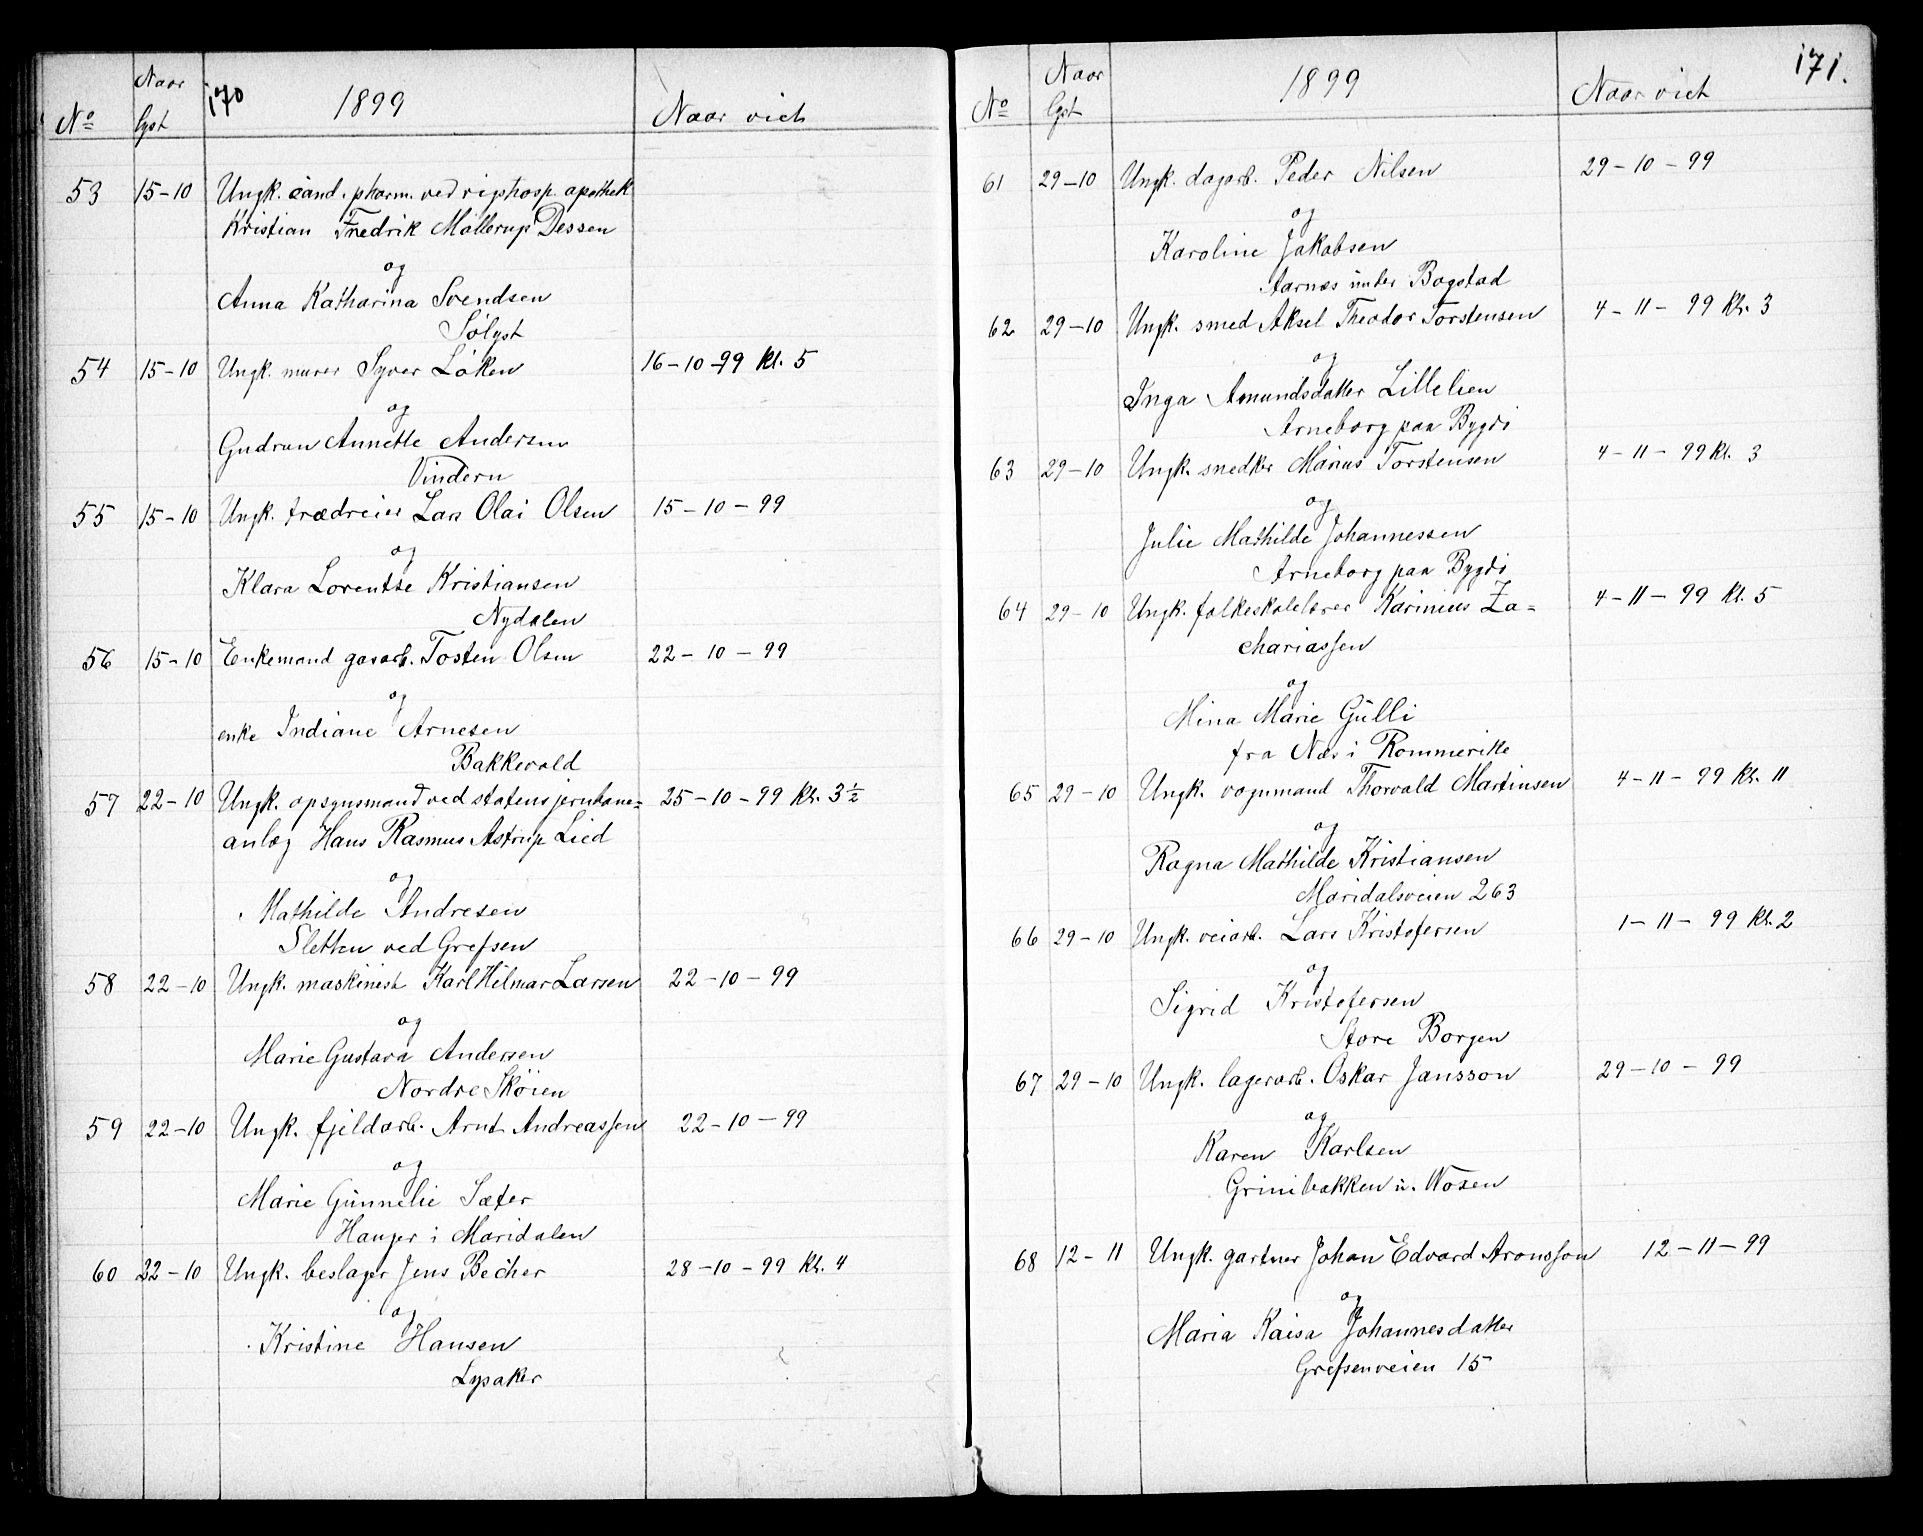 No Naar lyst 170 1899 Naar viet
53 15-10 Ungk. cand. pharm. ved rigshosp. apothek
Kristian Fredrik Møllerup Dessen
og
Anna Katharina Svendsen
Sølyst
54 15-10 Ungk. murer Syver Løken 16-10-99 Kl. 5
og
Gudrun Annette Andersen
Vindern
55 15-10 Ungk. trædreier Lars Olai Olsen 15-10-99
og
Klara Lorentse Kristiansen
Nydalen
56 15-10 Enkemand gasarb. Tosten Olsen 22-10-99
og
enke Indiane Arnesen
Bakkevold
57 22-10 Ungk. opsynsmand ved statens jernbane= 25-10-99 Kl. 3½
anlæg Hans Rasmus Astrup Lied
og
Mathilde Andresen
Sletten ved Grefsen
58 22-10 Ungk. maskinist Karl Hilmar Larsen 22-10-99
og
Marie Gustava Andersen
Nordre Skøien
59 22-10 Ungk. fjeldarb. Arnt Andreassen 22-10-99
og
Marie Gunnelie Sæter
Hauger i Maridalen
60 22-10 Ungk. beslager Jens Becher 28-10-99 Kl. 4
og
Kristine Hansen
Lysaker
No Naar lyst 1899 Naar viet 171.
61 29-10 Ungk. dagarb. Peder Nilsen 29-10-99
og
Karoline Jakobsen
Aarnæs under Bogstad
62 29-10 Ungk. smed Aksel Theodor Torstensen 4-11-99 Kl. 3
og
Inga Amundsdatter Lillelien
Arneborg paa Bygdø
63 29-10 Ungk. snedker Marius Torstensen 4-11-99 Kl. 3
og
Julie Mathilde Johannessen
Arneborg paa Bygdø
64 29-10 Ungk. folkeskolelærer Karinius Za= 4-11-99 Kl. 5
chariassen
og
Mina Marie Gulli
fra Næs i Rommerike
65 29-10 Ungk. vognmand Thorvald Martinsen 4-11-99 Kl. 11
og
Ragna Mathilde Kristiansen
Maridalsveien 263
66 29-10 Ungk. veiarb. Lars Kristofersen 1-11-99 Kl. 2
og
Sigrid Kristofersen
Store Borgen
67 29-10 Ungk. lagerarb. Oskar Jansson 29-10-99
og
Karen Karlsen
Grinibakken u. Wosen
68 12-11 Ungk. gartner Johan Edvard Aronsson 12-11-99
og
Maria Kaisa Johannesdatter
Grefsenveien 15